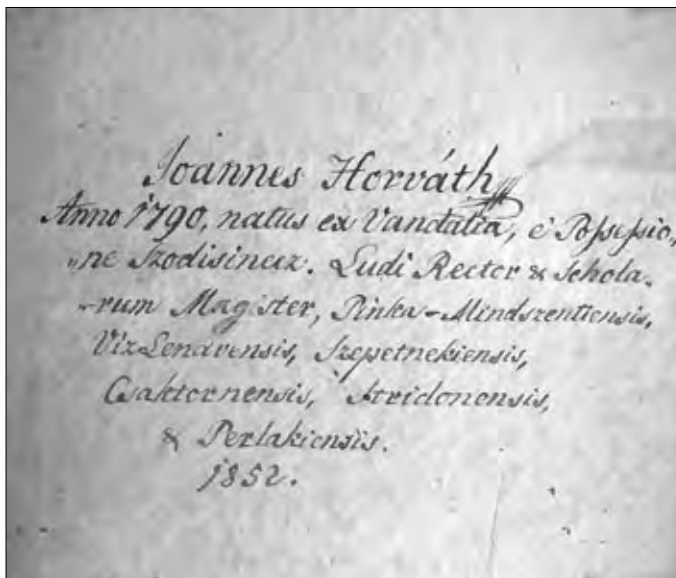 Joannes Horváth
Anno 1790, natus ex Vandalia, é Possessio„
„ne Szodisincz. Ludi Rector & Schola„
„rum Magister, Pinka-Mindszentiensis,
VizLendvensis, Szepetnekiensis,
Csaktornensis, Stridonensis,
& Perlakiensiis.
1852.